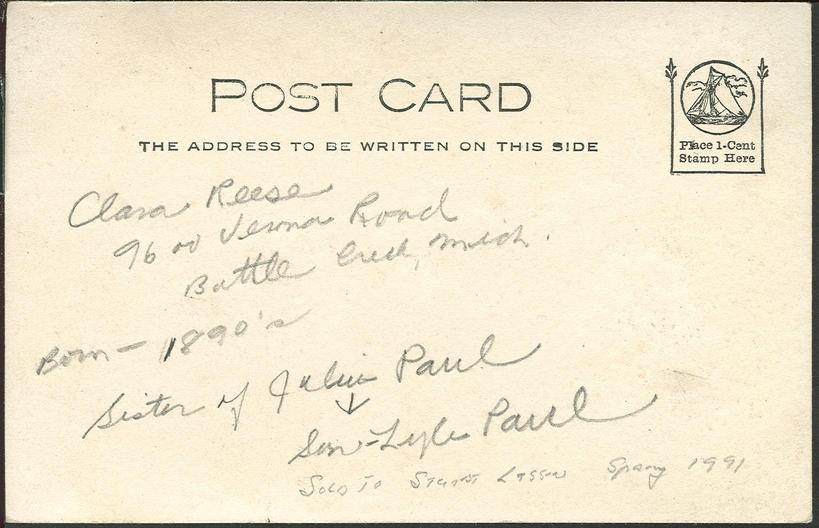 POST CARD
THE ADDRESS TO BE WRITTEN ON THIS SIDE
Place 1-Cent
Stamp Here
Clara Reese
9600 Verona Road
Battle Creek, Mich.
Born - 1890's
Sister of Julia Paul
Son - Lyle Paul
Sold To Stuart Spring 1991